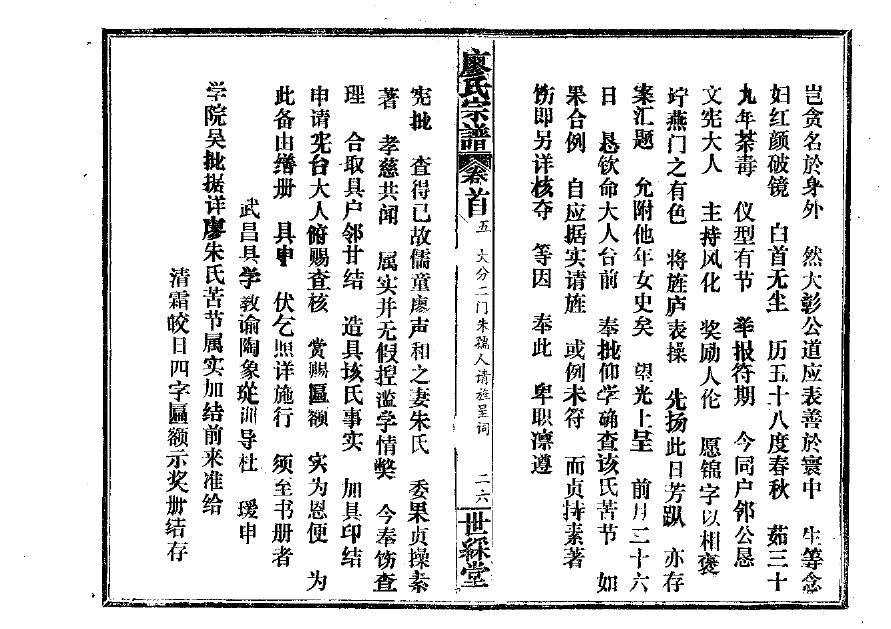 岂贪名於身外 然大彰公道应表善於寰中 生等念
妇红颜破镜 白首无尘 历五十八度春秋 茹三十
九年荼毒 仪型有节 举报符期 今同户邻公恳
文宪大人 主持风化 奖励人伦 愿锦字以相褒
讠燕门之有色 将旌庐表操 先扬此日芳踪 亦存
案汇题 允附他年女史矣 望光上呈 前月二十六
日 恳钦命大人台前 奉批仰学确查该氏苦节 如
果合例 自应据实请旌 或例未符 而贞持素著
饬即另详核夺 等因 奉此 卑职凛遵
廖氏宗谱 卷首 五 大分二门朱孺人请旌呈词 二六 世綵堂
宪批 查得已故儒童廖声和之妻朱氏 委果贞操素
著 孝慈共闻 属实并无假捏滥学情弊 今奉饬查
理 合取具户邻甘结 造具该氏事实 加具印结
申请宪台大人俯赐查核 赏赐匾额 实为恩便 为
此备由缮册 具申 伏乞照详施行 须至书册者
武昌县学教谕陶象 训导杜 瑷申
学院吴批据详廖朱氏苦节属实加结前来准给
清霜皎日四字匾额示奖册结存